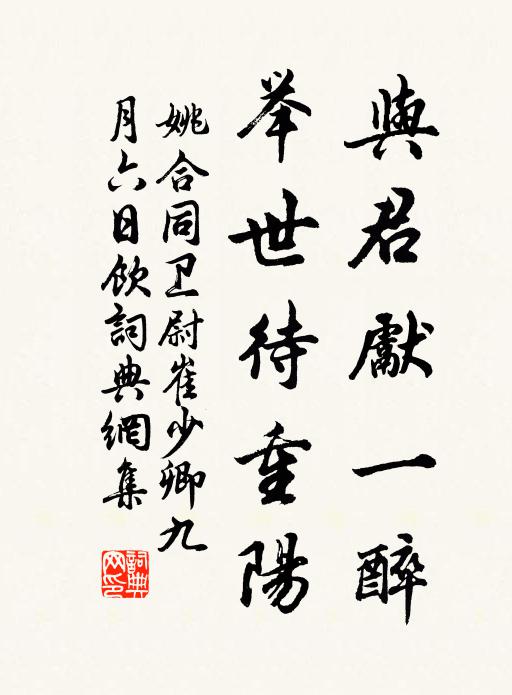 與君獻一醉
举世待重陽
姚合同卫尉崔少卿九
月六日飲詞典網集
詞典
网印